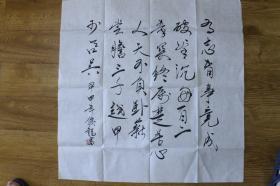 有志者事竟成
破釜沉舟百二
秦關終屬楚苦心
人天不負卧薪
嘗膽三千越甲
可吞吳 甲申年